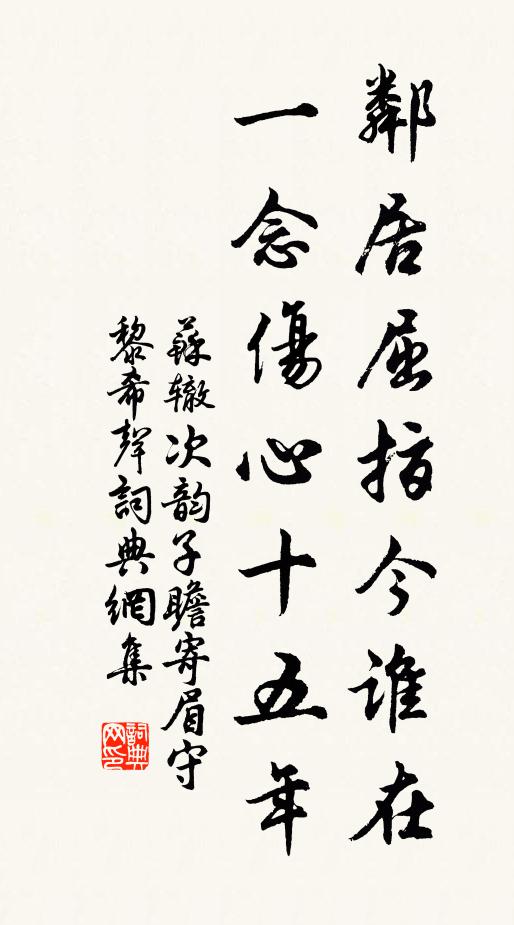 鄰居屈指今誰在
一念傷心十五年
蘇辙次韵子瞻寄眉守
黎希聲詞典網集
詞典网印